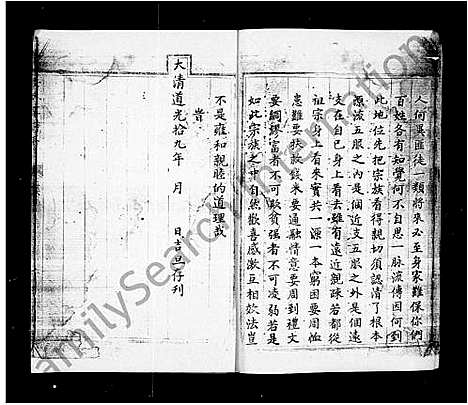 人何異匪徒一類將來必至身家難保你們
百姓各有知覺何不自思一脉流傳因何到
此地位先把宗族看得親切須認清了根本
源流五服之內是個近支五服之外是個遠
支在自己身上看去雖有遠近親疎若都從
祖宗身上看來實共一源一本窮困要周恤
患難要扶救錢米要通融情意要周到禮文
要綢繆富者不可欺貧强者不可凌弱若是
如此宗族之中自然歡喜感激互相效法豈
不是雍和親睦的道理哉
旹
大清道光拾九年 月 日吉旦存刋
FamilySearch International